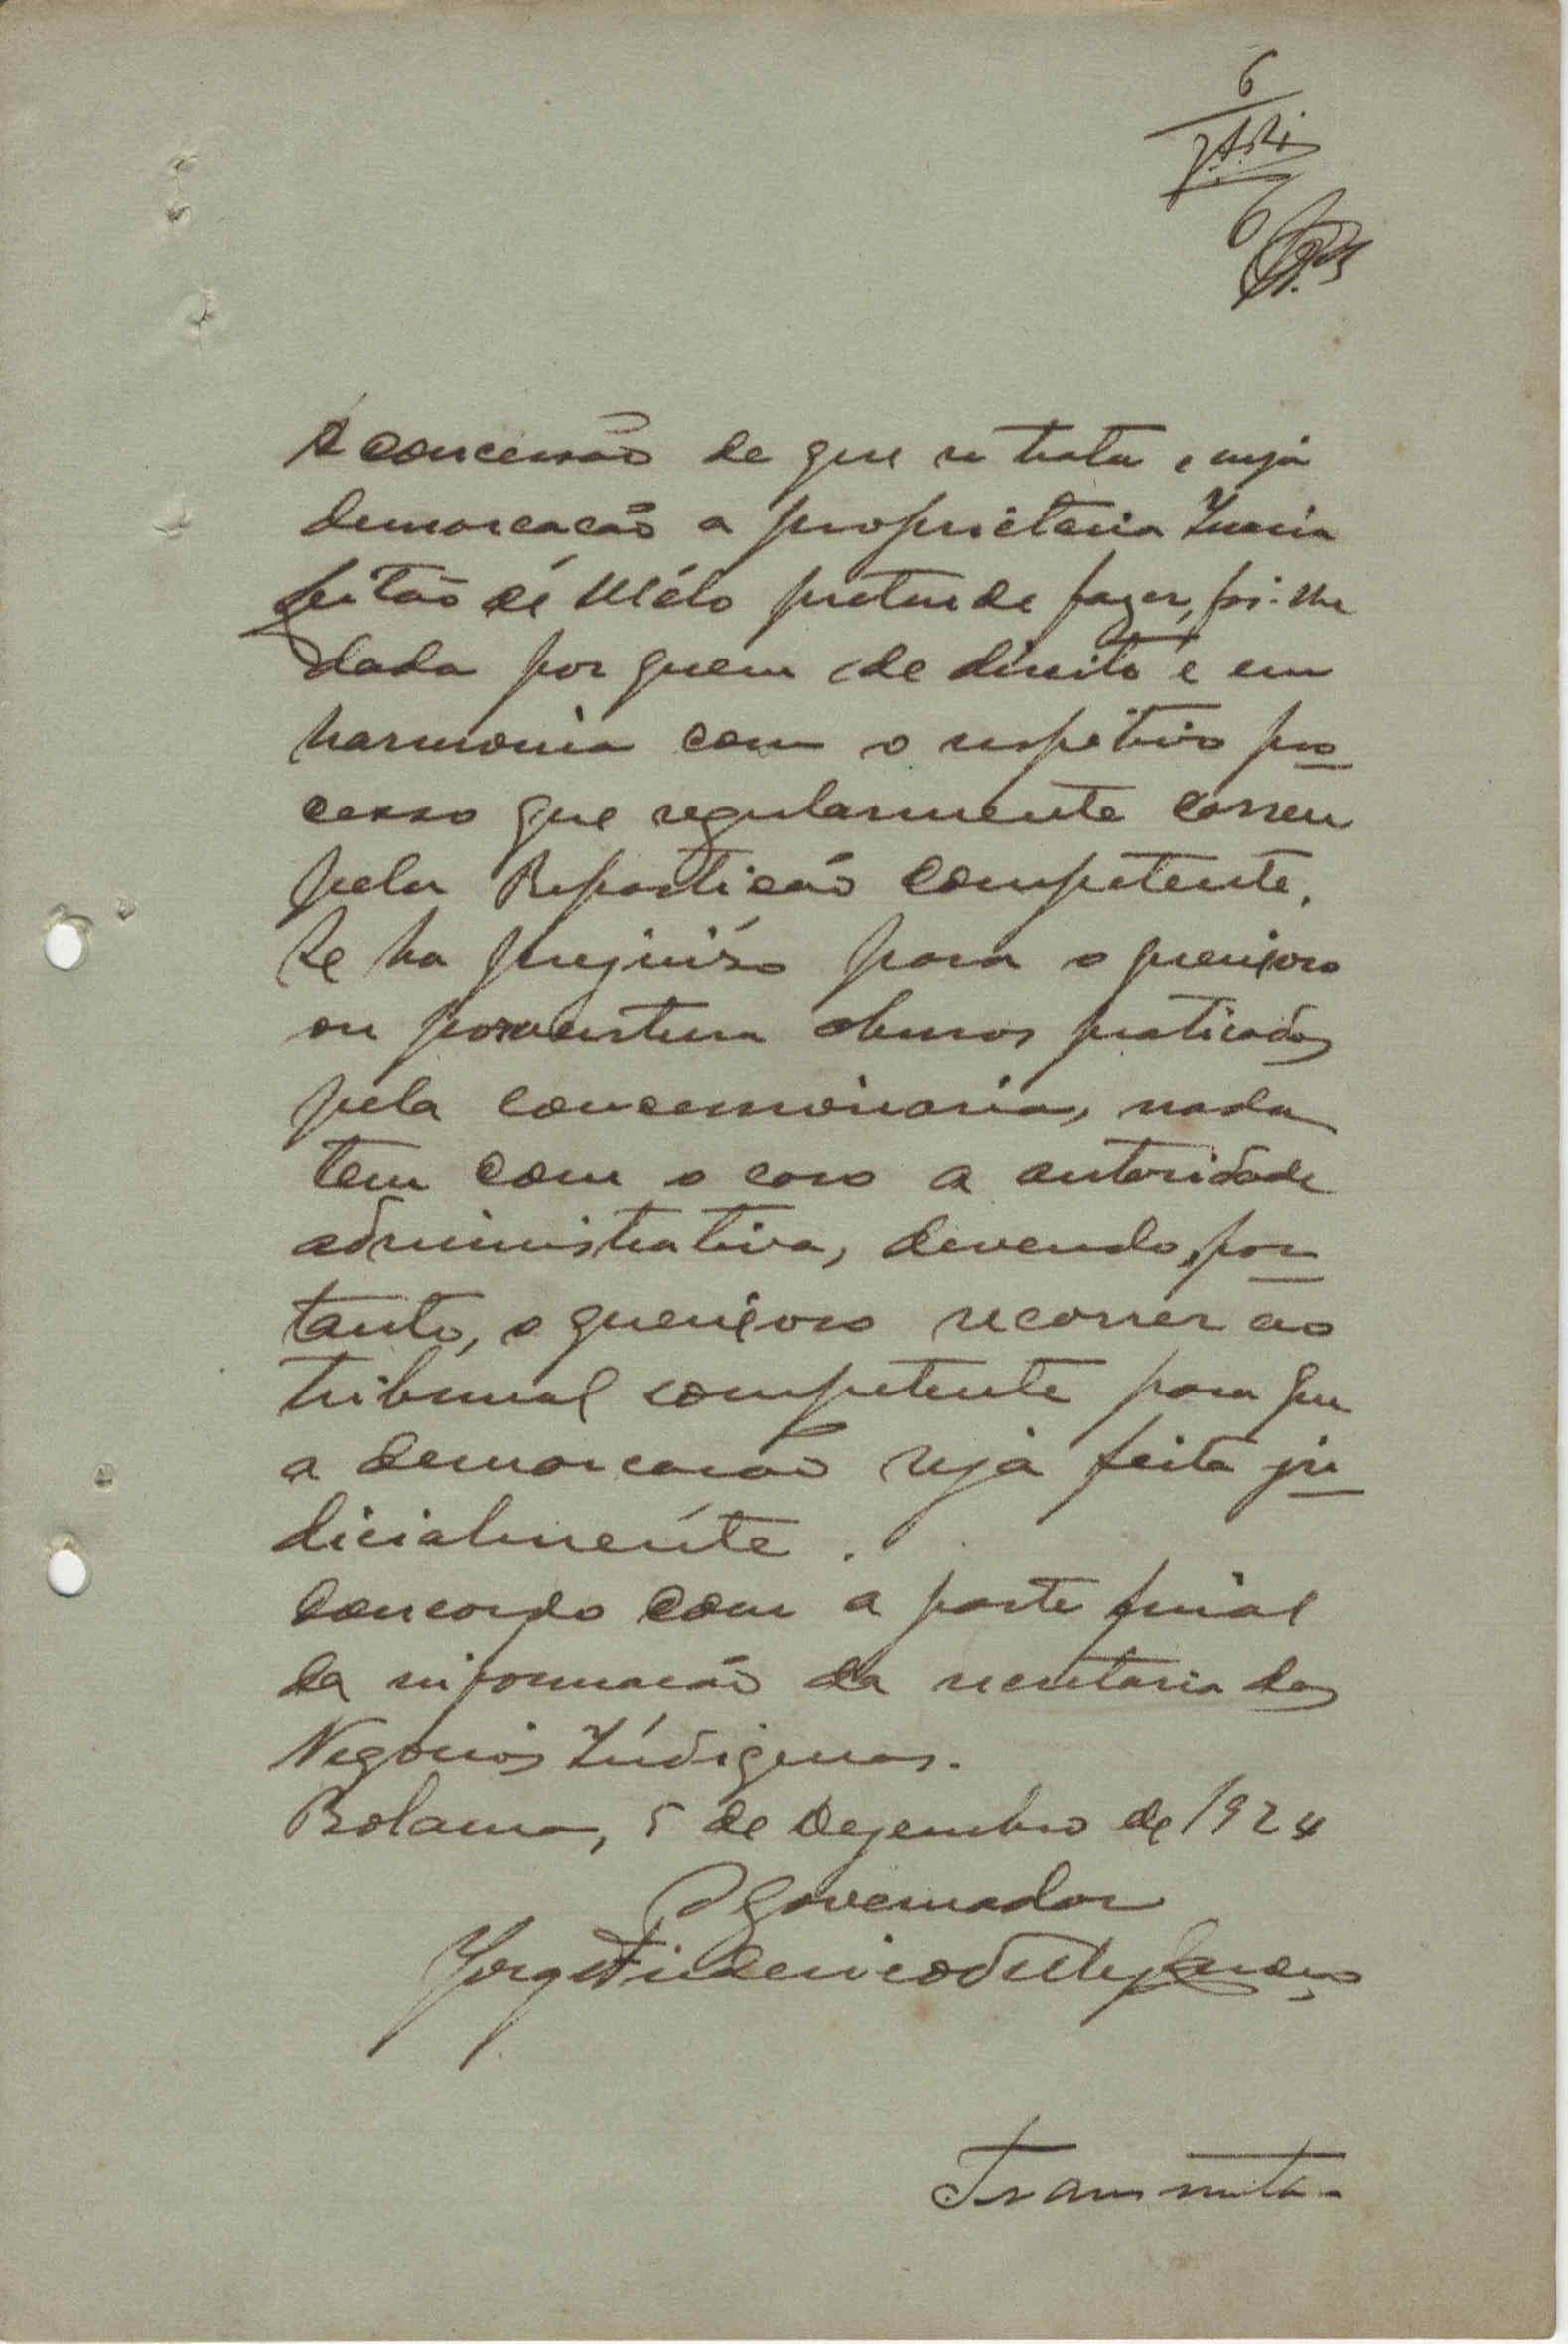 6
6
A concessão de que se trata e cuja
demarcação a proprietaria Inacia
Leitão de Mélo pretende fazer, foi-lhe
dada por quem de direito e em
harmonia com o respetivo pro
cesso que regularmente correu
pela Repartição competente.
Se ha prejuiso para o queixoso
ou porventura abusos praticados
pela concessionaria, nada
tem com o caso a autoridade
administrativa, devendo, por
tanto, o queixoso recorrer ao
tribunal competente para que
a demarcação seja feita ju
dicialmente.
Concordo com a parte final
da informação da secretaria dos
Negocios Indigenas.
Bolama, 5 de Dezembro de 1924
O Governador
Jorge Frederico Velez Caroço
Transmita-